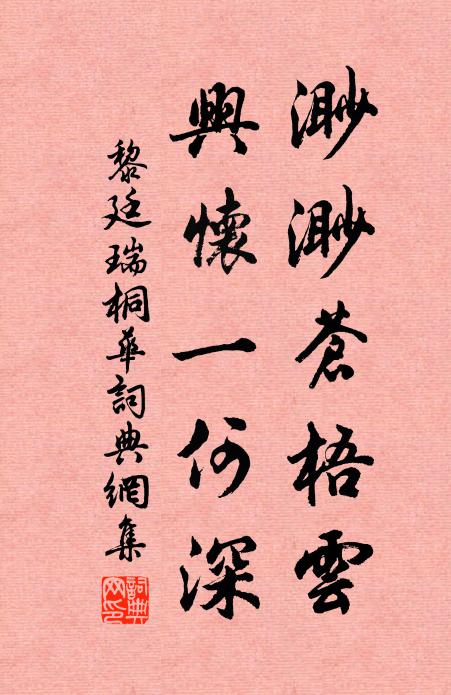 渺渺蒼梧雲
興懷一何深
黎廷瑞桐華詞典網集
詞典
网印